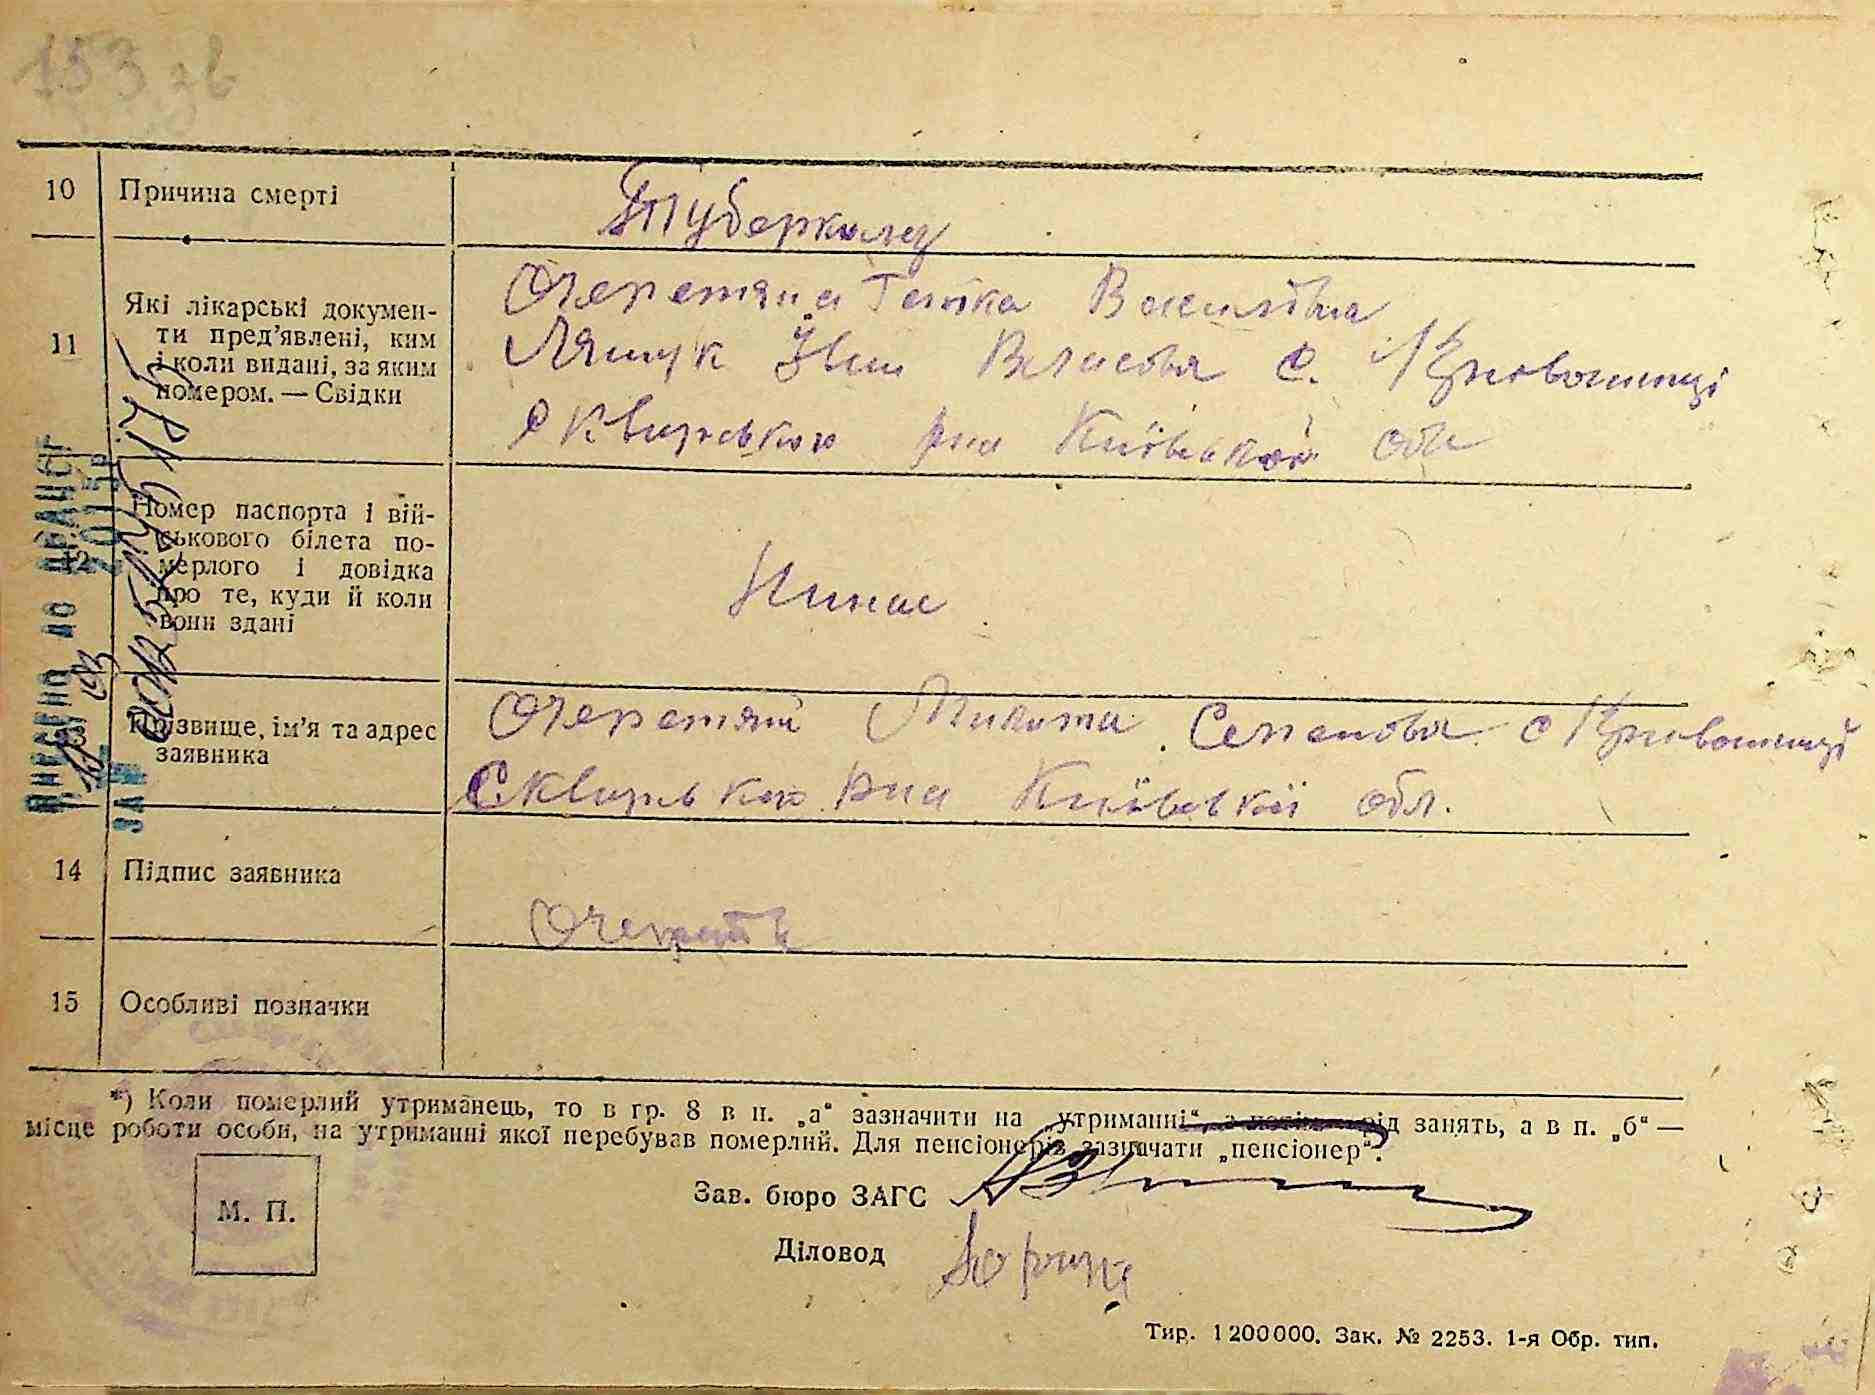 153 зв
10 Причина смерті
Туберкульоз
11 Які лікарські докумен-
ти пред'явлені, ким
і коли видані, за яким
номером. — Свідки
Очеретяна Ганка Василівна
Ляшук Іван Власович с. Кривошиїнці
Сквирського р-на Київської обл
12 Номер паспорта і вій-
ськового білета по-
мерлого і довідка
про те, куди й коли
вони здані
Немає
13 Прізвище, ім'я та адрес
заявника
Очеретяний Микита Семенович с Кривошиїнці
Сквирського р-на Київської обл.
14 Підпис заявника
Очерет
15 Особливі позначки
*) Коли померлий утриманець, то в гр. 8 в п. „а" зазначити на „утриманні", а потім рід занять, а в п. „б" —
місце роботи особи, на утриманні якої перебував померлий. Для пенсіонерів зазначати „пенсіонер".
Зав. бюро ЗАГС
Діловод
М. П.
Тир. 1200000. Зак. № 2253. 1-я Обр. тип.
ВНЕСЕНО ДО ДРАЦСГ
ЗА № 2015р